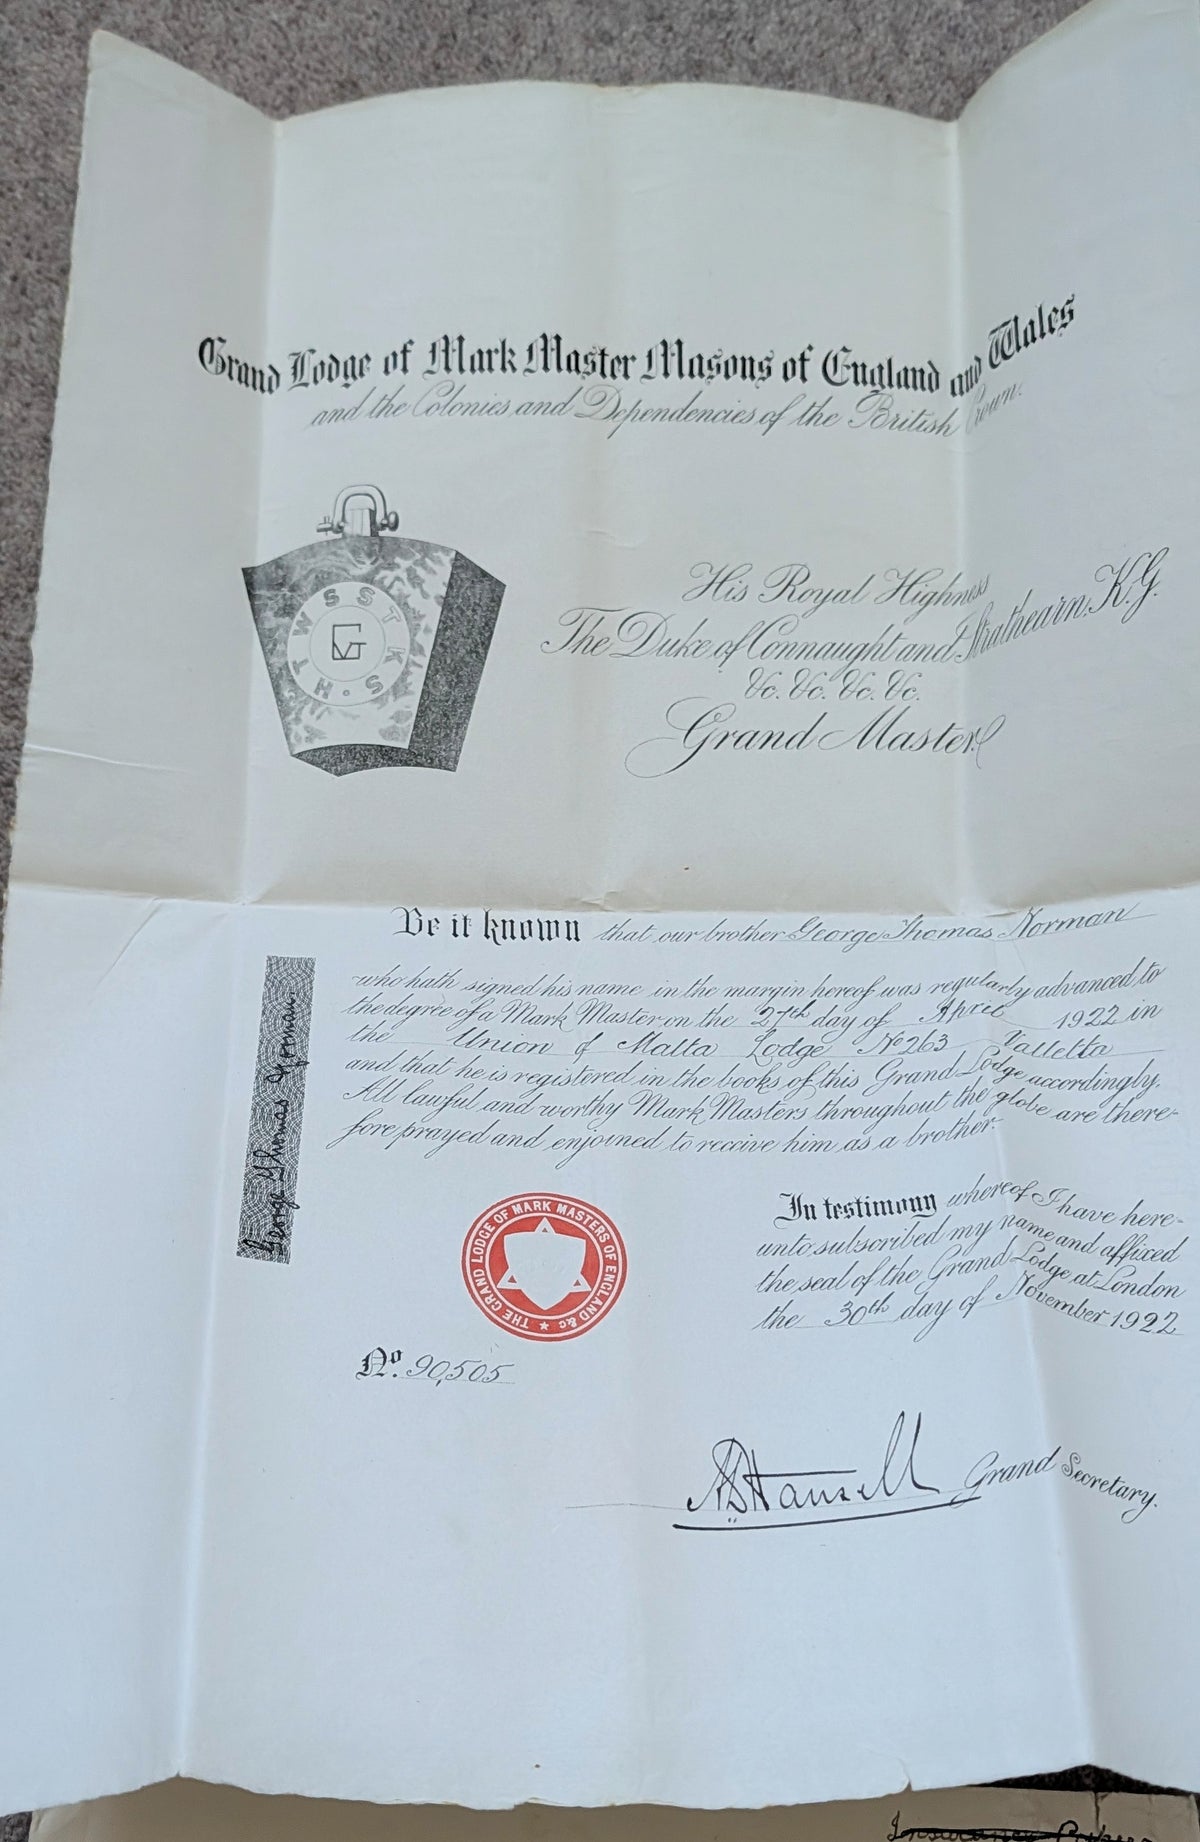 Grand Lodge of Mark Master Masons of England and Wales
and the Colonies and Dependencies of the British Crown.
HTWSSTKS
G
His Royal Highness
The Duke of Connaught and Strathearn, K.G.
&c. &c. &c. &c.
Grand Master
Be it known that our brother George Thomas Norman
who hath signed his name in the margin hereof was regularly advanced to
the degree of a Mark Master on the 27th day of April 1922 in
the Union of Malta Lodge No 263 Valletta
and that he is registered in the books of this Grand Lodge accordingly.
All lawful and worthy Mark Masters throughout the globe are there-
fore prayed and enjoined to receive him as a brother.
George Thomas Norman
In testimony whereof I have here-
unto subscribed my name and affixed
the seal of the Grand Lodge at London
the 30th day of November 1922
THE GRAND LODGE OF MARK MASTERS OF ENGLAND &c ★
No. 90,505
Hansell Grand Secretary.
Insurance